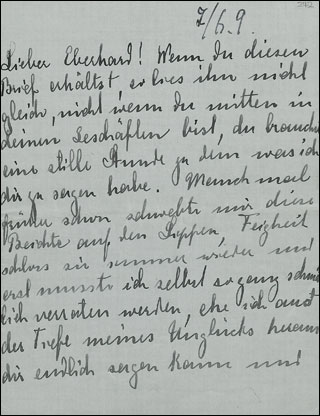 7/6.9.
Lieber Eberhard! Wenn du diesen
Brief erhältst, so lies ihn nicht
gleich, nicht wenn du mitten in
deinen Geschäften bist, du brauchst
eine stille Stunde zu dem was ich
dir zu sagen habe. Manchmal
früher schon schwebte mir diese
Beichte auf den Lippen, Feigheit
schloss sie immer wieder und
erst musste ich selbst so ganz schmäh
lich verraten werden, ehe ich aus
der Tiefe meines Unglücks heraus
dir endlich sagen kann und